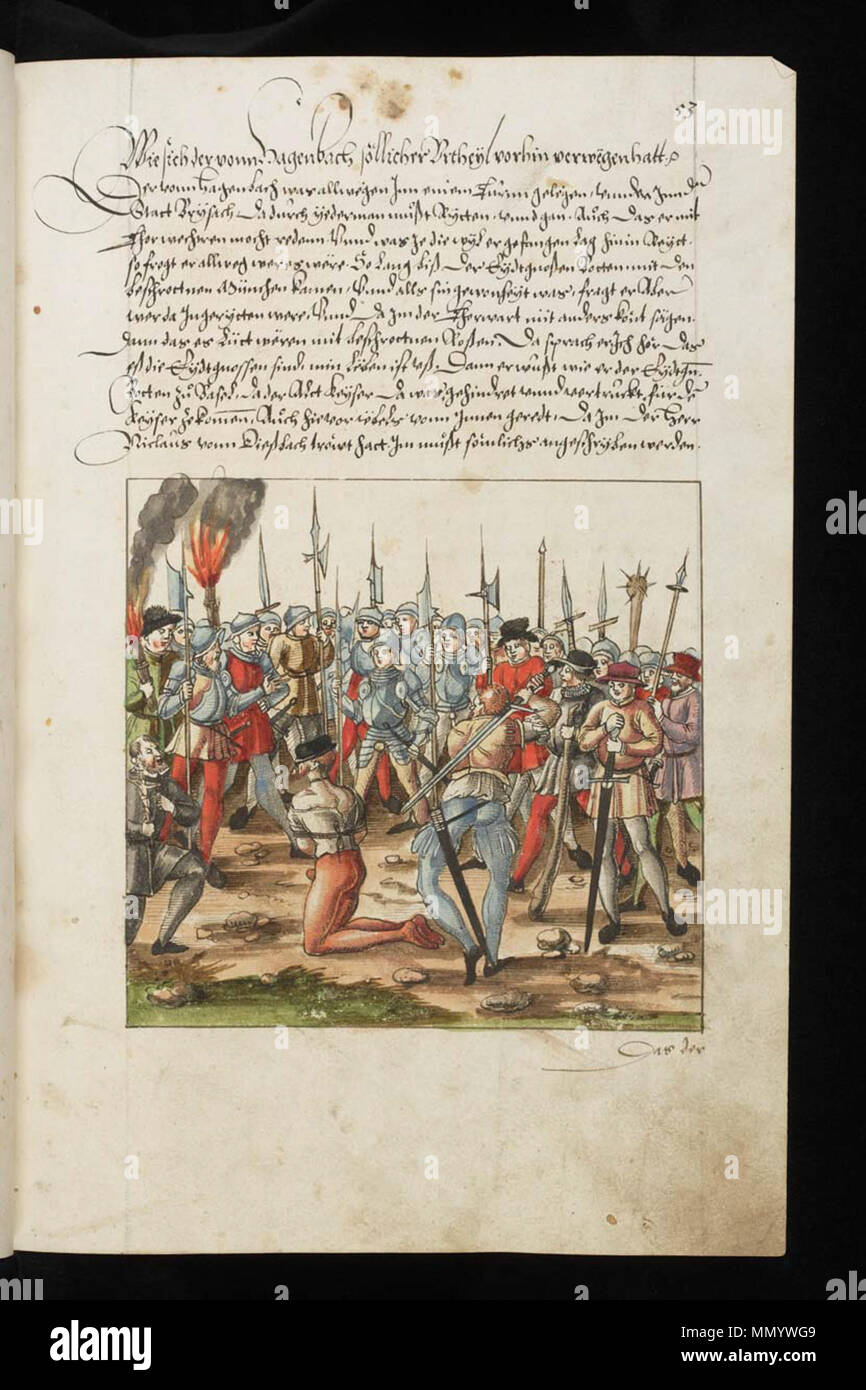 53
Wie sich der vonn Hagenbach söllicher Vrtheyl vorhin verwegen hatt.
Der vonn Hagenbach was allwegen Inn einem Turnn gelegen, vnnder Inn der
Statt Brysach, Da durch yederman mußt Rytten vnnd gan. Auch das er mit
Thorwechtren mocht redenn Vnnd was Je die wyl er gefangen lag hinin Reyt.
so fragt er allweg wer es wëre. So lang biß Der Eydtgnoßen Botten mit den
beschrottnen München kamen, Vnnd alls sin gewonheyt was, fragt er Aber
wer da Ingerytten were, Vnnd Da Im der Thorwart nüt anders kont sägen
Dann das es Lüt wëren mit beschrottnen Roßen. Da sprach er Ich hör das
eß die Eydtgnossen sind, min Leben ist vß. Dann er wußt wie er der Eydtgn.
Botten zů Basel, da der Alt Keyser Da was gehindret vnnd vertruckt für den
Keyser ze kommen, Auch hievor übels vonn Innen geredt, Da Im der Herr
Niclaus vonn Dießbach tröwt hatt Im mußt sömlichs angeschryben werden.
Das der
alamy
Image ID: MMYWG9
www.alamy.com